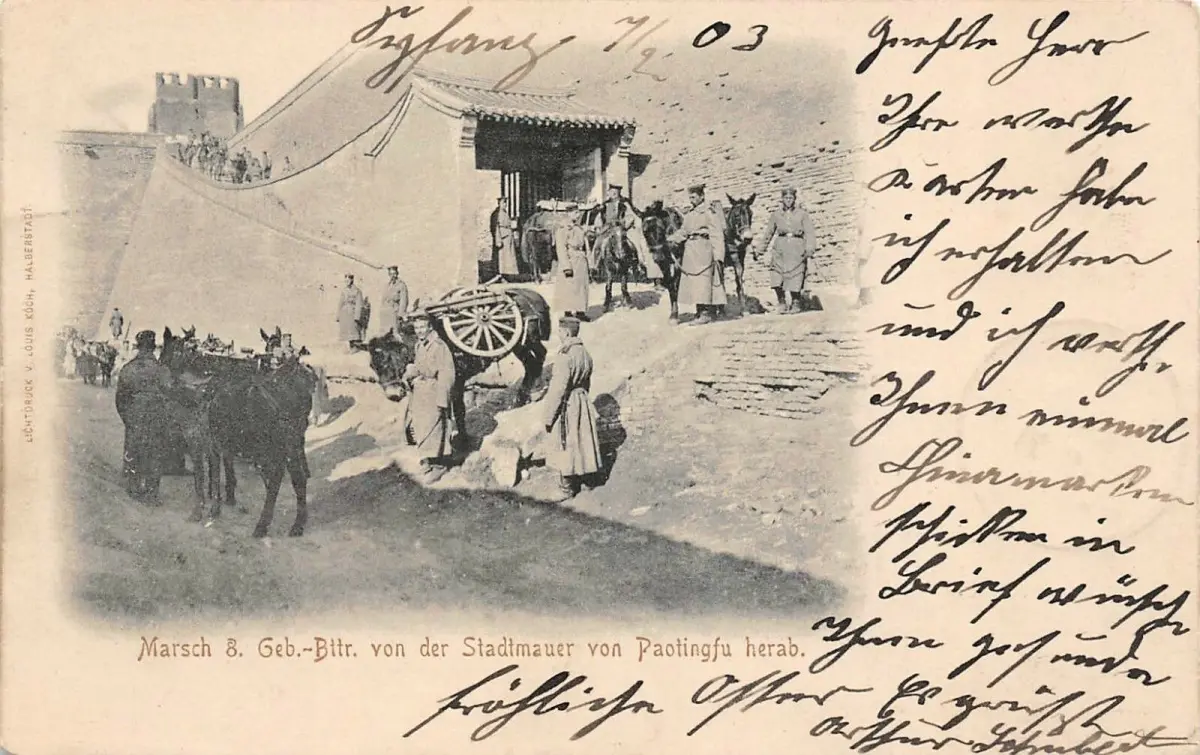 Syfang 7/2 03
Geehrte Herr
Ihre werthe
Karten habe
ich erhalten
und ich werthe
Ihnen einmal
Chinamarken
schicken in
Brief wünsch
Ihnen gesunde
fröhliche Ostern Es grüßt
Arthur
Marsch 8. Geb.-Bttr. von der Stadtmauer von Paotingfu herab.
LICHTDRUCK V. LOUIS KOCH, HALBERSTADT.